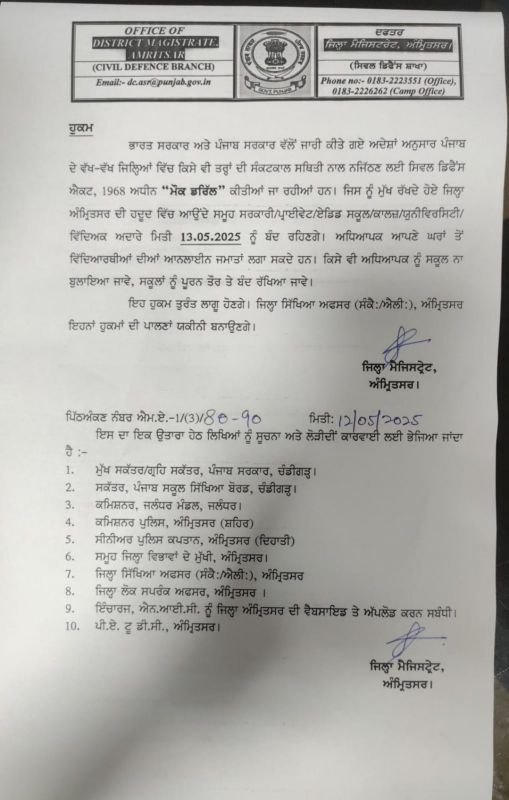 OFFICE OF
DISTRICT MAGISTRATE,
AMRITSAR
(CIVIL DEFENCE BRANCH)
Email:- dc.asr@punjab.gov.in
GOVT. PUNJAB
ਦਫਤਰ
ਜਿਲ੍ਹਾ ਮੈਜਿਸਟਰੇਟ, ਅੰਮ੍ਰਿਤਸਰ।
(ਸਿਵਲ ਡਿਫੈਂਸ ਸ਼ਾਖਾ)
Phone no:- 0183-2223551 (Office),
0183-2226262 (Camp Office)
ਹੁਕਮ
ਭਾਰਤ ਸਰਕਾਰ ਅਤੇ ਪੰਜਾਬ ਸਰਕਾਰ ਵੱਲੋਂ ਜਾਰੀ ਕੀਤੇ ਗਏ ਅਦੇਸ਼ਾਂ ਅਨੁਸਾਰ ਪੰਜਾਬ
ਦੇ ਵੱਖ-ਵੱਖ ਜਿਲ੍ਹਿਆਂ ਵਿੱਚ ਕਿਸੇ ਵੀ ਤਰ੍ਹਾਂ ਦੀ ਸੰਕਟਕਾਲ ਸਥਿਤੀ ਨਾਲ ਨਜਿੱਠਣ ਲਈ ਸਿਵਲ ਡਿਫੈਂਸ
ਐਕਟ, 1968 ਅਧੀਨ “ਮੌਕ ਡਰਿੱਲ” ਕੀਤੀਆਂ ਜਾ ਰਹੀਆਂ ਹਨ। ਜਿਸ ਨੂੰ ਮੁੱਖ ਰੱਖਦੇ ਹੋਏ ਜਿਲ੍ਹਾ
ਅੰਮ੍ਰਿਤਸਰ ਦੀ ਹਦੂਦ ਵਿੱਚ ਆਉਂਦੇ ਸਮੂਹ ਸਰਕਾਰੀ/ਪ੍ਰਾਈਵੇਟ/ਏਡਿਡ ਸਕੂਲ/ਕਾਲਜ/ਯੂਨੀਵਰਸਿਟੀ/
ਵਿੱਦਿਅਕ ਅਦਾਰੇ ਮਿਤੀ 13.05.2025 ਨੂੰ ਬੰਦ ਰਹਿਣਗੇ। ਅਧਿਆਪਕ ਆਪਣੇ ਘਰਾਂ ਤੋਂ
ਵਿੱਦਿਆਰਥੀਆਂ ਦੀਆਂ ਆਨਲਾਈਨ ਜਮਾਤਾਂ ਲਗਾ ਸਕਦੇ ਹਨ। ਕਿਸੇ ਵੀ ਅਧਿਆਪਕ ਨੂੰ ਸਕੂਲ ਨਾ
ਬੁਲਾਇਆ ਜਾਵੇ, ਸਕੂਲਾਂ ਨੂੰ ਪੂਰਨ ਤੌਰ ਤੇ ਬੰਦ ਰੱਖਿਆ ਜਾਵੇ।
ਇਹ ਹੁਕਮ ਤੁਰੰਤ ਲਾਗੂ ਹੋਣਗੇ। ਜਿਲ੍ਹਾ ਸਿੱਖਿਆ ਅਫਸਰ (ਸੰਕੈ:/ਐਲੀ:), ਅੰਮ੍ਰਿਤਸਰ
ਇਹਨਾਂ ਹੁਕਮਾਂ ਦੀ ਪਾਲਣਾਂ ਯਕੀਨੀ ਬਨਾਉਣਗੇ।
ਜਿਲ੍ਹਾ ਮੈਜਿਸਟ੍ਰੇਟ,
ਅੰਮ੍ਰਿਤਸਰ।
ਪਿੱਠਅੰਕਣ ਨੰਬਰ ਐਮ.ਏ.-1/(3)/80-90 ਮਿਤੀ: 12/05/2025
ਇਸ ਦਾ ਇਕ ਉਤਾਰਾ ਹੇਠ ਲਿਖਿਆਂ ਨੂੰ ਸੂਚਨਾ ਅਤੇ ਲੋੜੀਂਦੀ ਕਾਰਵਾਈ ਲਈ ਭੇਜਿਆ ਜਾਂਦਾ
ਹੈ :-
1. ਮੁੱਖ ਸਕੱਤਰ/ਗ੍ਰਹਿ ਸਕੱਤਰ, ਪੰਜਾਬ ਸਰਕਾਰ, ਚੰਡੀਗੜ੍ਹ।
2. ਸਕੱਤਰ, ਪੰਜਾਬ ਸਕੂਲ ਸਿੱਖਿਆ ਬੋਰਡ, ਚੰਡੀਗੜ੍ਹ।
3. ਕਮਿਸ਼ਨਰ, ਜਲੰਧਰ ਮੰਡਲ, ਜਲੰਧਰ।
4. ਕਮਿਸ਼ਨਰ ਪੁਲਿਸ, ਅੰਮ੍ਰਿਤਸਰ (ਸ਼ਹਿਰ)
5. ਸੀਨੀਅਰ ਪੁਲਿਸ ਕਪਤਾਨ, ਅੰਮ੍ਰਿਤਸਰ (ਦਿਹਾਤੀ)
6. ਸਮੂਹ ਜਿਲ੍ਹਾ ਵਿਭਾਵਾਂ ਦੇ ਮੁੱਖੀ, ਅੰਮ੍ਰਿਤਸਰ।
7. ਜਿਲ੍ਹਾ ਸਿੱਖਿਆ ਅਫਸਰ (ਸੰਕੈ:/ਐਲੀ:), ਅੰਮ੍ਰਿਤਸਰ
8. ਜਿਲ੍ਹਾ ਲੋਕ ਸਪਰੰਕ ਅਫਸਰ, ਅੰਮ੍ਰਿਤਸਰ ।
9. ਇੰਚਾਰਜ, ਐਨ.ਆਈ.ਸੀ. ਨੂੰ ਜਿਲ੍ਹਾ ਅੰਮ੍ਰਿਤਸਰ ਦੀ ਵੈਬਸਾਇਡ ਤੇ ਅੱਪਲੋਡ ਕਰਨ ਸਬੰਧੀ।
10. ਪੀ.ਏ. ਟੂ ਡੀ.ਸੀ., ਅੰਮ੍ਰਿਤਸਰ।
ਜਿਲ੍ਹਾ ਮੈਜਿਸਟ੍ਰੇਟ,
ਅੰਮ੍ਰਿਤਸਰ।